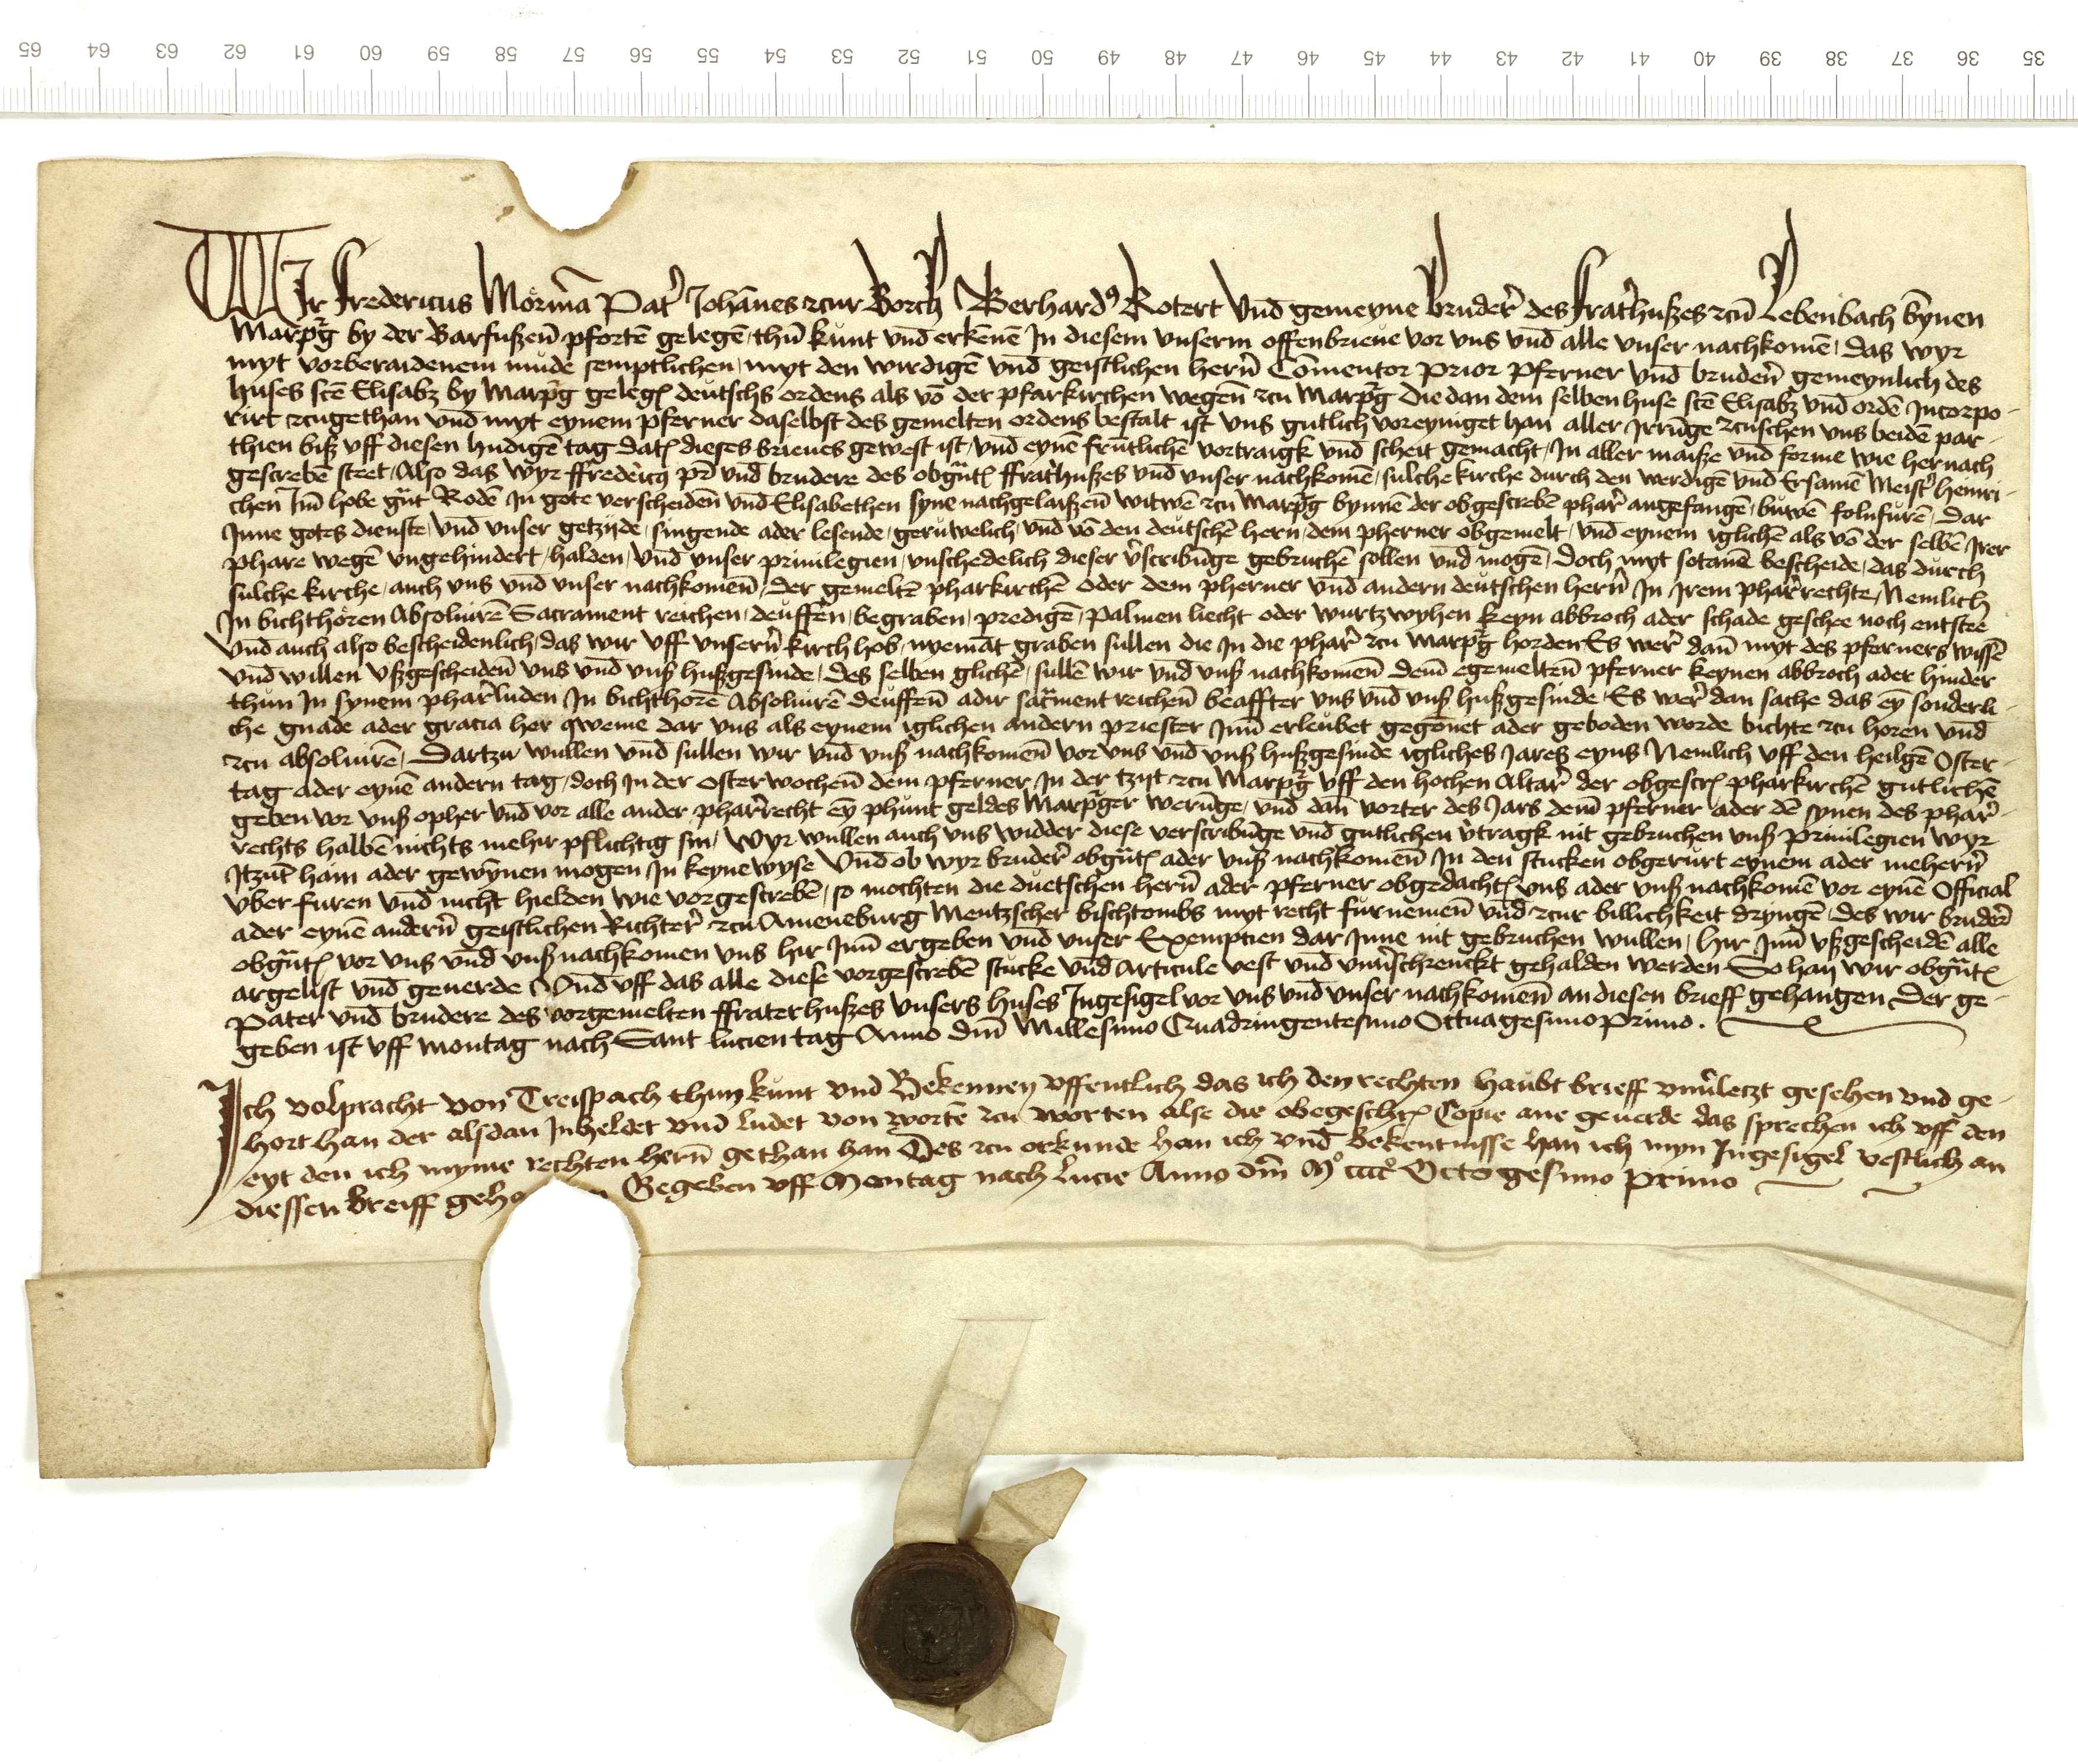 65 64 63 62 61 60 59 58 57 56 55 54 53 52 51 50 49 48 47 46 45 44 43 42 41 40 39 38 37 36 35
Wir Fredericus Mormā Pat' Johānes zcur Borch Gerhard9 Rotert vnd gemeyne bruder' des Frat'hußes zcū Lebenbach bȳnen
Marp'g by der Barfußen̄ pfortē gelegē thū kunt vnd erkēnē In diesem vnserm offenbrieue vor vns vnd alle vnser nachkomē das wyr
myt vorberaidenem mude semptlichen myt den wirdigē vnd geistlichen hern̄ Cōmentor Prior Pferner vnd bruder̄n gemeynlich des
huses scē Elisabz by Marp'g geleg deutschs ordens als vō der pfarkirchen wegen̄ zcu Marp'g die dan dem selben huse scē Elisabz vnd ordē Incorpo-
rirt zcugethan vnd myt eynem pferner daselbst des gemelten ordens bestalt ist vns gutlich voreyniget han aller Irrūge zcuschen vns beidē par-
thien biß vff diesen hudigē tag dat dieses brieues gewest ist vnd eynē frūtlichē vortraigk vnd scheit gemacht In aller maiße vnd forme wie hernach
gescrebē steet Also das wyr ffredericus pr̄ vnd brudere des obgūt ffrat'hußes vnd vnser nachkomē sulche kirche durch den werdigē vnd Ersamē Meist' heinri-
chen Im hobe gūt Rodē In gote verscheiden̄ vnd Elisabethen syne nachgelaißen̄ witwē zcu Marp'g bynnē der obgescrebē phar' angefangē buwē folnfurē dar
Inne gotes dienste vnd vnser getzijde singende ader lesende geruwelich vnd vō den deutschē hern dem pherner obgemelt vnd eynem iglichē als vō der selbē Irer
phare wegē vngehindert halden vnd vnser priuilegien vnschedelich dieser v'scribūge gebruchē sollen vnd mogē doch myt sotanē bescheide das durch
sulche kirche auch vns vnd vnser nachkomen̄ der gemeltē pharkirchē oder dem pherner vnd andern deutschen hern̄ In Irem phar'rechte Nemlich
In bichthoren Absoluirē Sacrament reichen deuffen begraben predigē palmen liecht oder wurtzwyhen keyn abbroch ader schade geschee noch entstee
vnd auch also bescheidenlich das wir vff vnsern̄ kirchhob nyemāt graben sullen die In die phar' zcu Marp'g horden Es wer' dan̄ myt des pferners wissē
vnd willen vßgescheiden̄ vns vnd vnß hußgesinde des selben glichē sullē wir vnd vnß nachkomen̄ dem̄ egemelten̄ pferner keynen abbroch ader hinder
thun In synem pharluden In bichthorē Absoluirē deuffen̄ adir sacrment reichen̄ beaffter vns vnd vnß hußgesinde Es wer' dan sache das eȳ sonderli-
che gnade ader gracia her qweme dar vns als eynem iglichen andern priester Im̄ erleubet gegonet ader geboden worde bichte zcu horen vnd
zcu absoluirē Dartzu wullen vnd sullen wir vnd vnß nachkomen̄ vor vns vnd vnß hußgesinde igliches Jares eyns Nemlich vff den heilgē Oster-
tag ader eynē andern tag doch In der osterwochen̄ dem pferner In der tzijt zcu Marp'g vff den hochen Altar' der obgescr pharkirchē gutlichē
geben vor vnß opher vnd vor alle ander phar'recht eȳ phunt geldes Marp'ger werūge vnd dan̄ vorter des Jars dem̄ pferner ader dē synen des phar'-
rechts halbē nichts mehir pflichtig sin Wyr wullen auch vns widder diese verscribūge vnd gutlichen v'tragk nit gebruchen vnß Priuilegien wyr
Itzūt hain ader gewȳnen mogen In keyne wyse vnd ob wyr bruder' obgūt ader vnß nachkomen̄ In den stucken obgerurt eynem ader mehern̄
vber furen vnd nicht hielden wie vorgescrebē so mochten die duetschen hern̄ ader pferner obgedacht vns ader vnß nachkomē vor eynē Official
ader eynē andern̄ geistlichen Richter' zcu Ameneburg Mentzscher bischtombs myt recht furnemen̄ vnd zcur billichkeit dryngē des wir bruder'
obgūt vor vns vnd vnß nachkomen vns hir Im̄ ergeben vnd vnser Exemptien dar Inne nit gebruchen wullen hir Im̄ vßgescheidē alle
argelist vnd geuerde Vnd vff das alle diese vorgescrebē stucke vnd Articule vest vnd vnu'schrenckt gehalden werden So han wir obgūt
Pater vnd brudere des vorgemelten ffraterhußes vnsers huses Ingesigel vor vns vnd vnser nachkomen̄ an diesen brieff gehangen Der ge-
geben ist vff montag nach Sant lucien tag Anno dm̄ Millesimo Quadringentesimo Octuagesimo Primo.
Ich volpracht von Treispach thun kunt vnd Bekennen vffentlich das ich den rechten haubt brieff vnu'letzt gesehen vnd ge-
hort han der alsdan Inheldet vnd ludet von wortē zcu worten alse die obegeschr Copie ane geuerde das sprechen ich vff den
eyt den ich myme rechten hern̄ gethan han Des zcu orkunde han ich vnd bekentnisse han ich myn Ingesigel vestlich an
diessen breiff geh Gegeben vff Montag nach lucie Anno dm̄ Mº ccccº Octogesimo primo